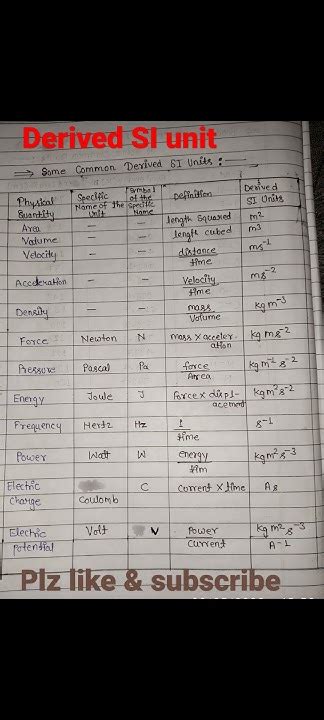 Derived SI unit
⇒ Some Common Derived SI Units :→
Physical Quantity | Specific Name of the Unit | Symbol of the Specific Name | Definition | Derived SI Units
Area | — | — | length squared | m²
Volume | — | — | length cubed | m³
Velocity | — | — | distance / time | ms⁻¹
Acceleration | — | — | Velocity / time | ms⁻²
Density | — | — | mass / Volume | kg m⁻³
Force | Newton | N | mass × acceleration | kg ms⁻²
Pressure | Pascal | Pa | force / Area | kg m⁻¹ s⁻²
Energy | Joule | J | force × displacement | kg m² s⁻²
Frequency | Hertz | Hz | 1 / time | s⁻¹
Power | Watt | W | energy / tim | kg m² s⁻³
Electric Charge | Coulomb | C | current × time | As
Electric Potential | Volt | V | Power / Current | kg m² s⁻³ A⁻¹
Plz like & subscribe